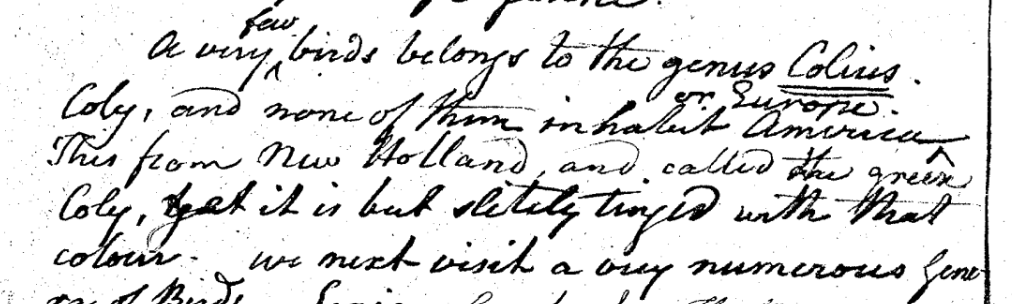 A very few birds belongs to the genus Colius.
Coly, and none of them inhabit America or Europe
This from New Holland, and called the green
Coly, yet it is but slitely tinged with that
colour. we next visit a very numerous Gene-
of Birds